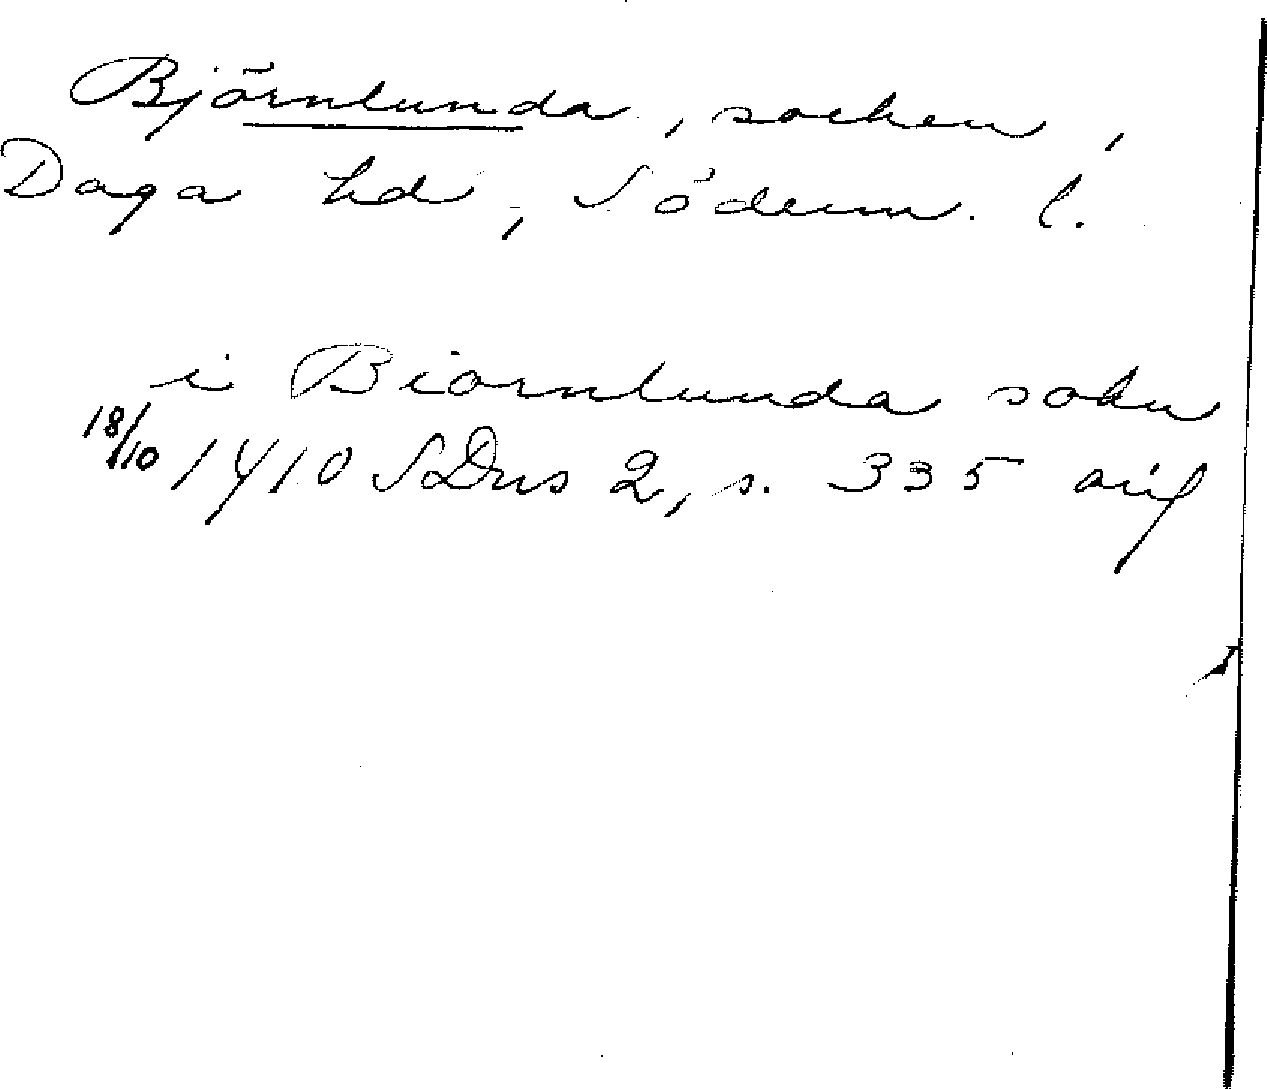 Björnlunda, socken,
Daga hd, Söderm. l.
i Biornlunda sokn
18/10 1410 SDns 2, s. 335 avskr